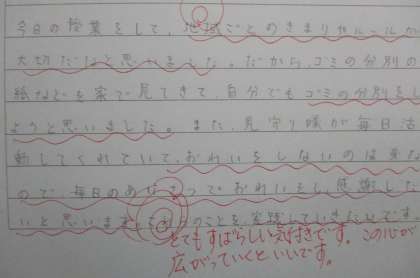 今日の授業をして、地域ごとのきまりやルールが
大切だなと思いました。だから、ゴミの分別の
紙などを家で見てきて、自分でもゴミの分別をし
ようと思いました。また、見守り隊が毎日活
動してくれていて、おれいをしないのは
ので、毎日のあいさつでおれいをし、感謝した
いと思います。のことを、実践していきたいです。
とてもすばらしい気付きです。この心が
広がっていくといいです。